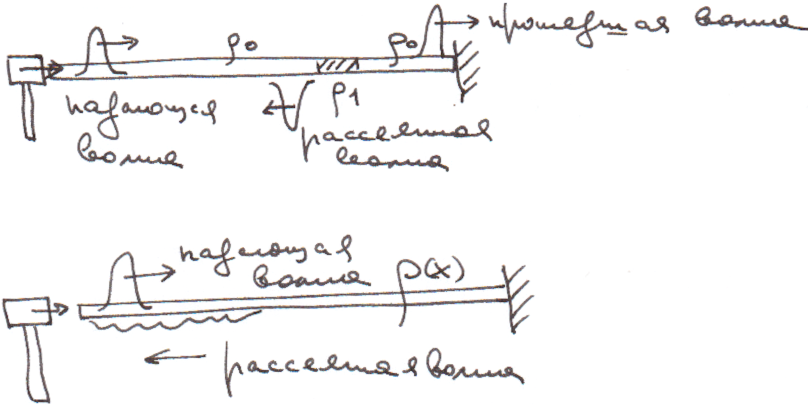 ρ₀
ρ₀
прошедшая волна
падающая
волна
ρ₁
рассеянная
волна
падающая
волна
ρ(x)
рассеянная волна